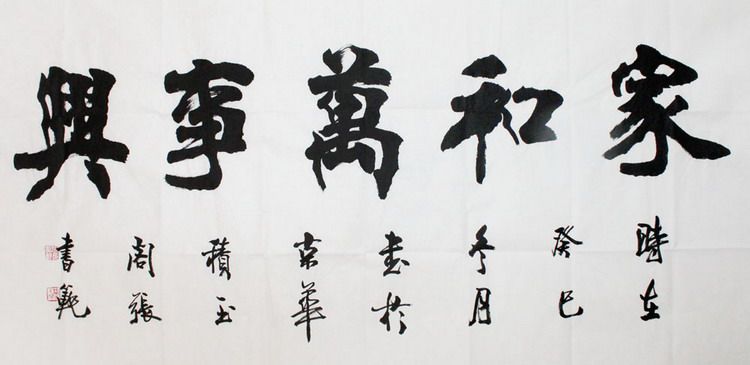 家和萬事興
時在
癸巳
冬月
书於
京華
積玉
閣張
書範